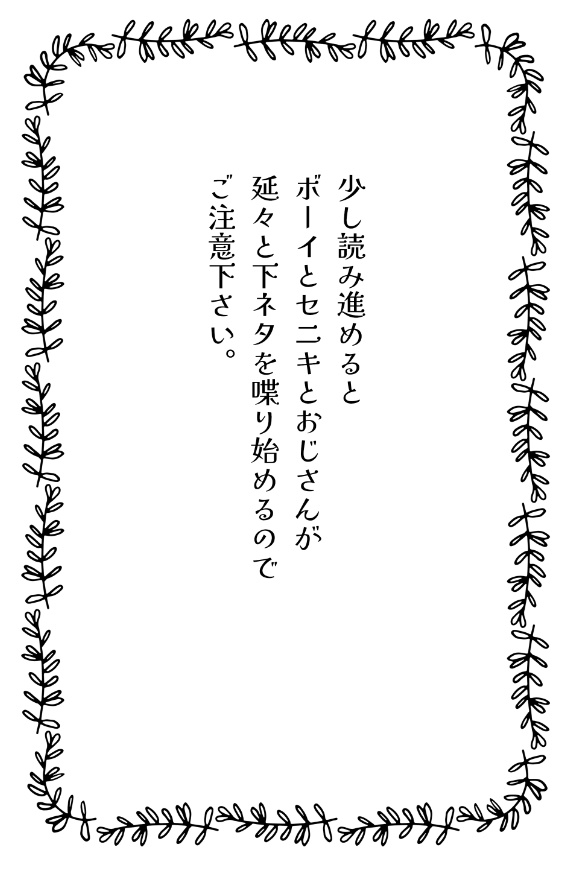 少し読み進めると
ボーイとセニキとおじさんが
延々と下ネタを喋り始めるので
ご注意下さい。